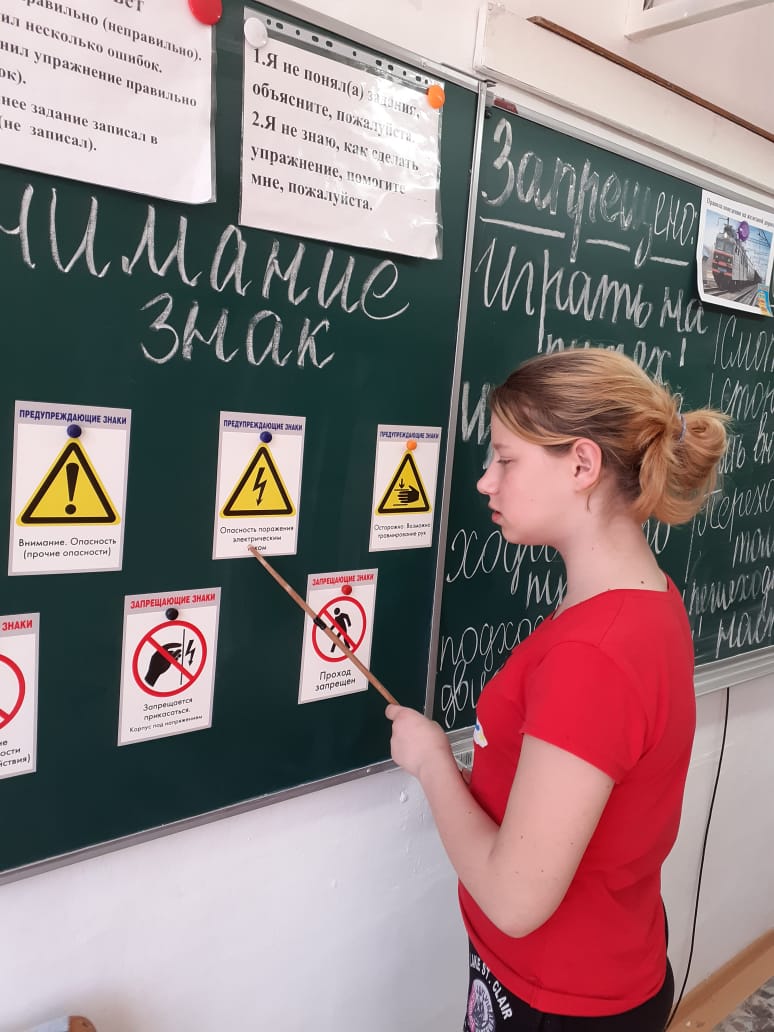 вет
равильно (неправильно).
ил несколько ошибок.
нил упражнение правильно
ок).
нее задание записал в
(не записал).
1.Я не понял(а) задания,
объясните, пожалуйста.
2.Я не знаю, как сделать
упражнение, помогите
мне, пожалуйста.
нимание
знак
ПРЕДУПРЕЖДАЮЩИЕ ЗНАКИ
Внимание. Опасность
(прочие опасности)
ПРЕДУПРЕЖДАЮЩИЕ ЗНАКИ
Опасность поражения
электрическим
током
ПРЕДУПРЕЖДАЮЩИЕ ЗНАКИ
Осторожно! Возможно
травмирование рук
ЗНАКИ
ие
ости
йствия)
ЗАПРЕЩАЮЩИЕ ЗНАКИ
Запрещается
прикасаться.
Корпус под напряжением
ЗАПРЕЩАЮЩИЕ ЗНАКИ
Проход
запрещен
Запрещено:
играть на
путях!
ход
подхо
дви
Правила поведения на железной дороге
Смот
сторо
ть
перехо
толь
пешеход
наст
LAKE ST. CLAIR